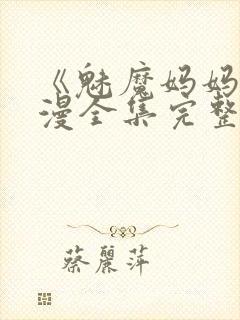 《魅魔妈妈
漫全集完整
蔡麗萍